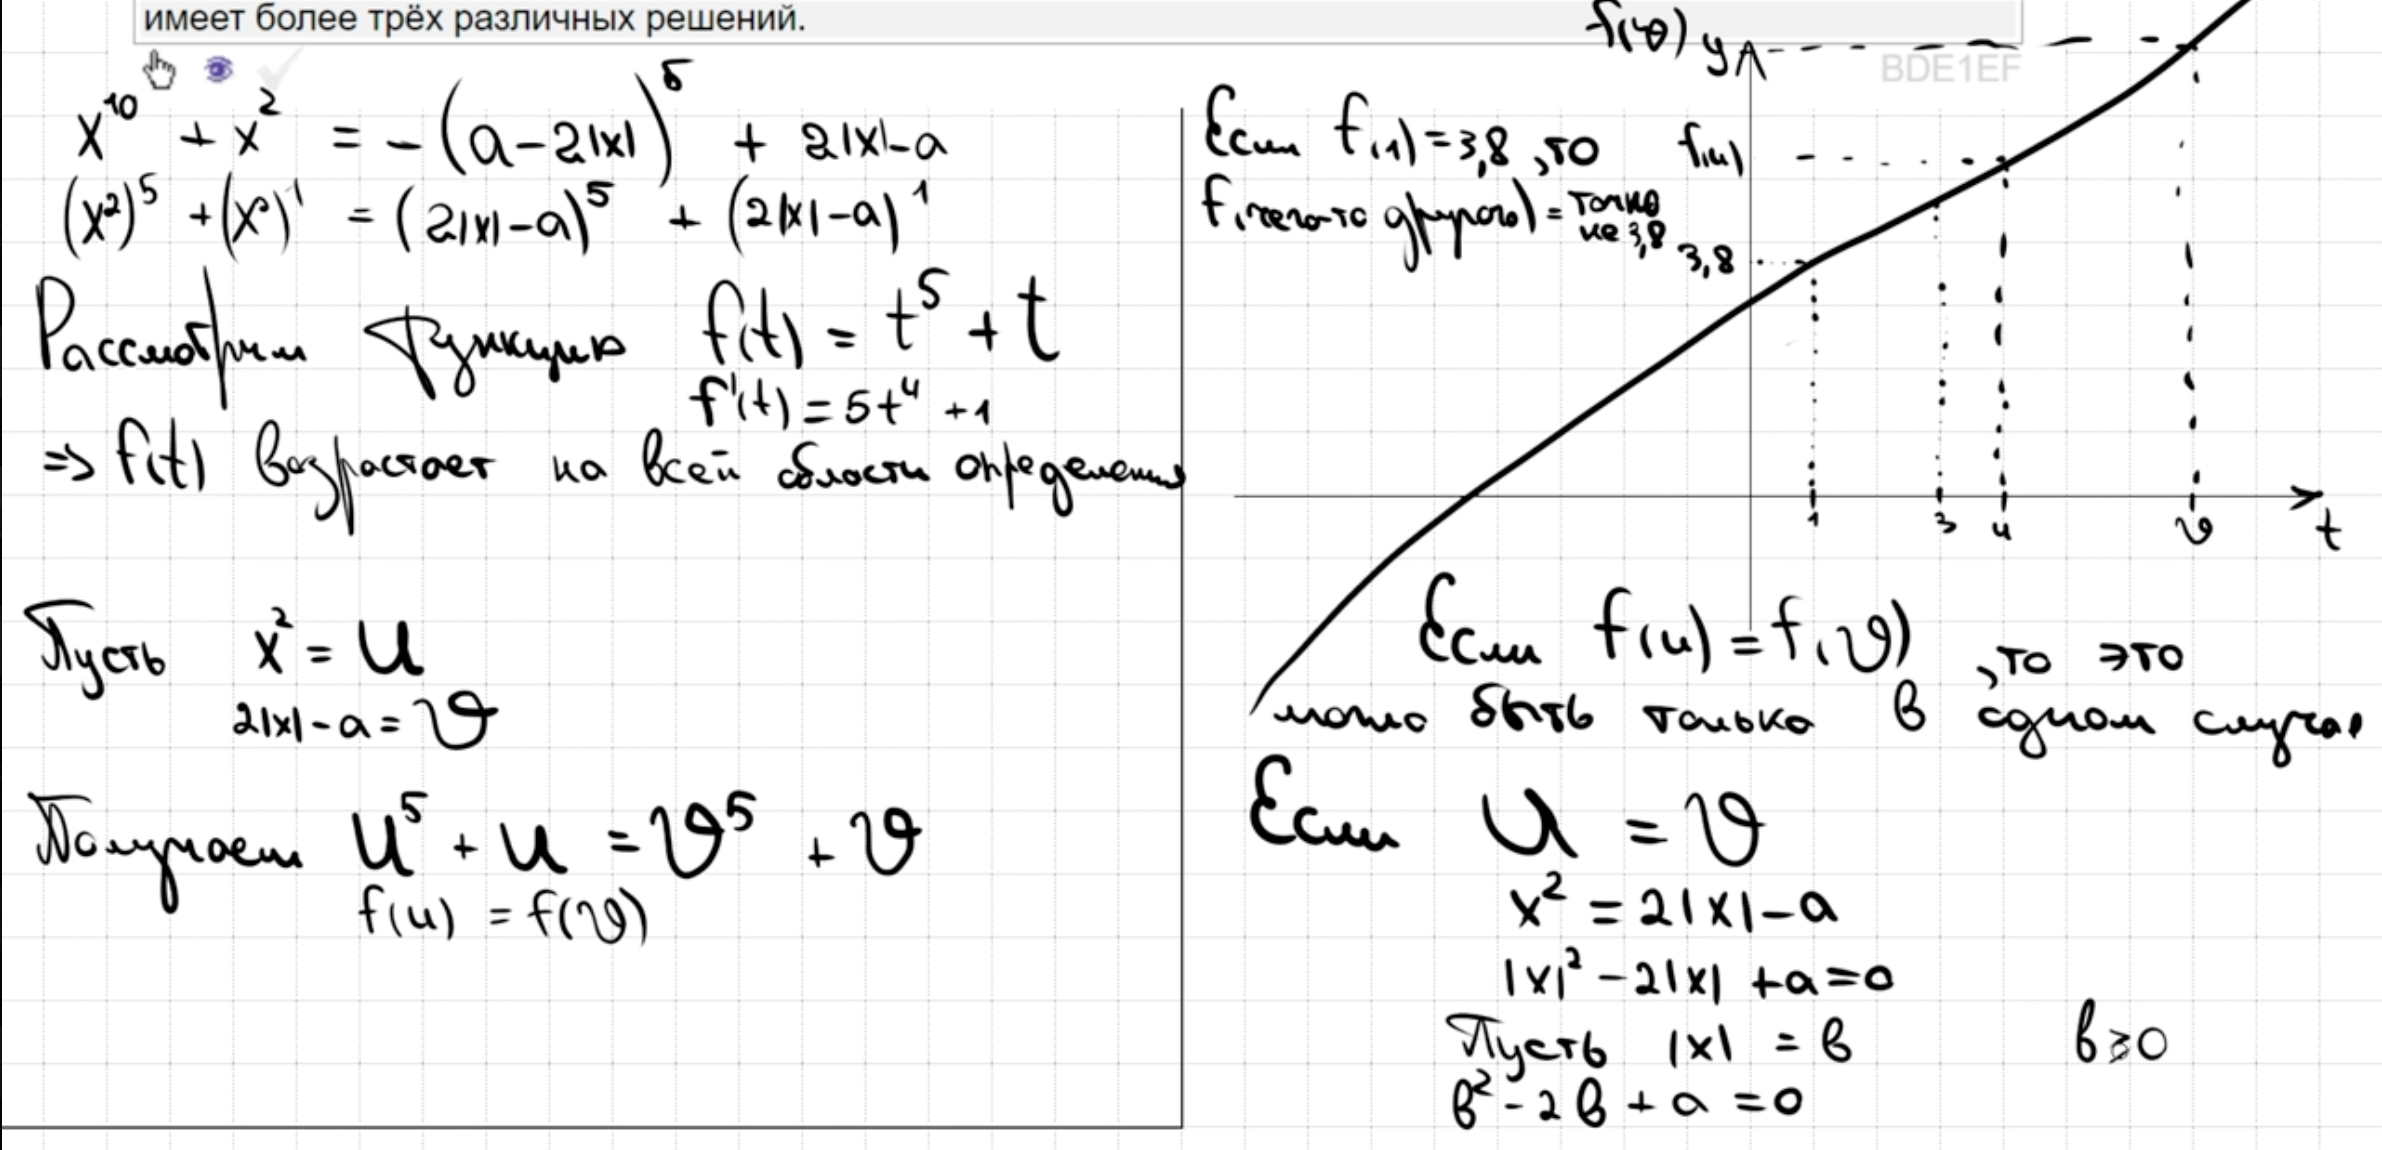 имеет более трёх различных решений.
BDE1EF
x¹⁰ + x² = -(a-2|x|)⁵ + 2|x|-a
(x²)⁵ + (x²)¹ = (2|x|-a)⁵ + (2|x|-a)¹
Рассмотрим функцию f(t) = t⁵ + t
f'(t) = 5t⁴ + 1
=> f(t) возрастает на всей области определения
Пусть x² = u
2|x|-a = v
Получаем u⁵ + u = v⁵ + v
f(u) = f(v)
Если f(1) = 3,8, то
f(чего-то другого) = точно не 3,8
f(v) y
f(u)
3,8
1 3 u v t
Если f(u) = f(v), то это
может быть только в одном случае
Если u = v
x² = 2|x|-a
|x|² - 2|x| + a = 0
Пусть |x| = b b ≥ 0
b² - 2b + a = 0